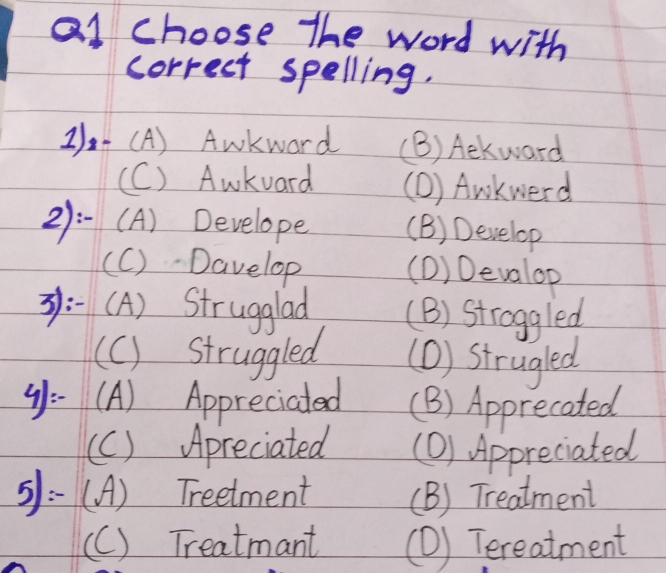 Q1 Choose The word with
correct spelling.
1):- (A) Awkward (B) Aekward
(C) Awkvard (D) Awkwerd
2):- (A) Develope (B) Develop
(C) Davelop (D) Devalop
3):- (A) Strugglad (B) Stroggled
(C) Struggled (D) Strugled
4):- (A) Appreciatad (B) Apprecated
(C) Apreciated (D) Appreciated
5):- (A) Treetment (B) Treatment
(C) Treatmant (D) Tereatment